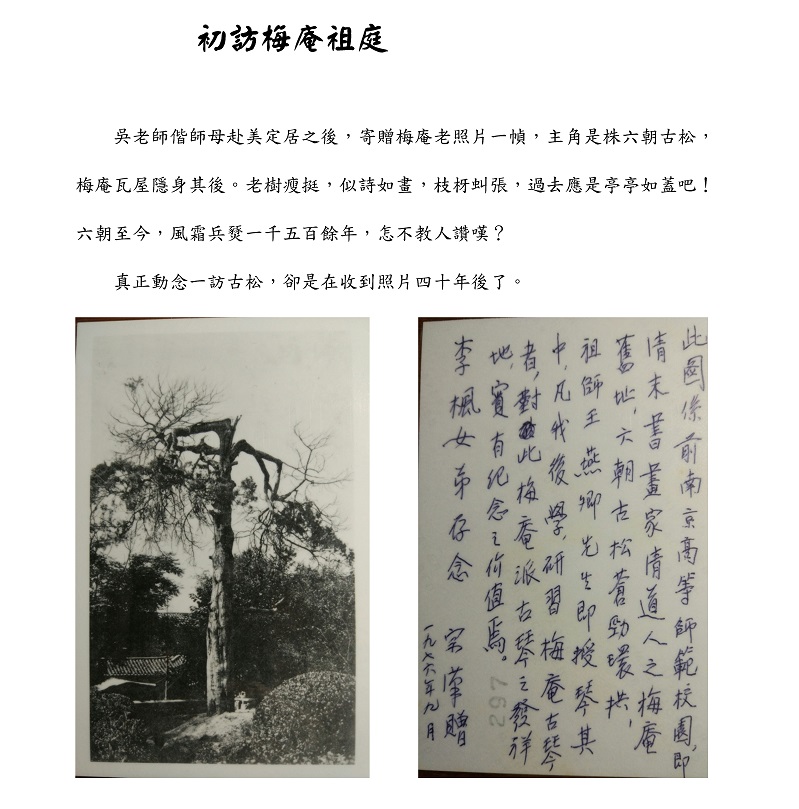 初訪梅庵祖庭
吳老師偕師母赴美定居之後，寄贈梅庵老照片一幀，主角是株六朝古松，
梅庵瓦屋隱身其後。老樹瘦挺，似詩如畫，枝枒虯張，過去應是亭亭如蓋吧！
六朝至今，風霜兵燹一千五百餘年，怎不教人讚嘆？
真正動念一訪古松，卻是在收到照片四十年後了。
此圖係前南京高等師範校園，即
清末書畫家清道人之梅庵
舊址，六朝古松蒼勁環拱，
祖師王燕卿先生即授琴其
中，凡我後學，研習梅庵古琴
者，對此梅庵派古琴之發祥
地，實有紀念之价值焉。
李楓女弟存念
宗漢贈
一九七六年九月
297